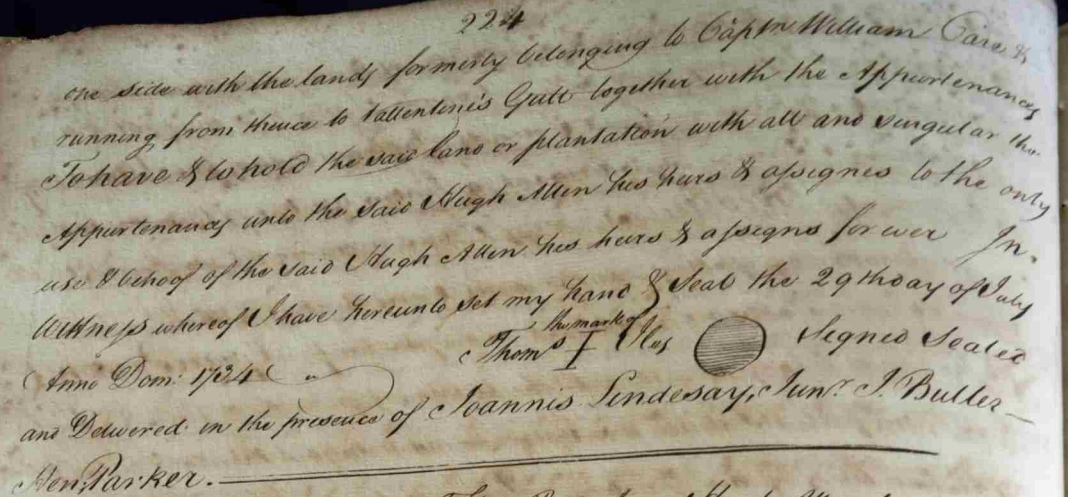 224
one side with the lands formerly belonging to Captn William Carr &
running from thence to tallentine's Gutt together with the Appurtenances
To have & to hold the said land or plantation with all and singular the
Appurtenances unto the said Hugh Allen his heirs & assignes to the only
use & behoof of the said Hugh Allen his heirs & assigns for ever In
Wittness whereof I have hereunto set my hand & Seal the 29th day of July
the mark of
Anno Dom: 1734 Thoms I Iles Signed Sealed
and Delivered in the presence of Joannis Lindesay, Junr. J. Butler
Hen, Parker.